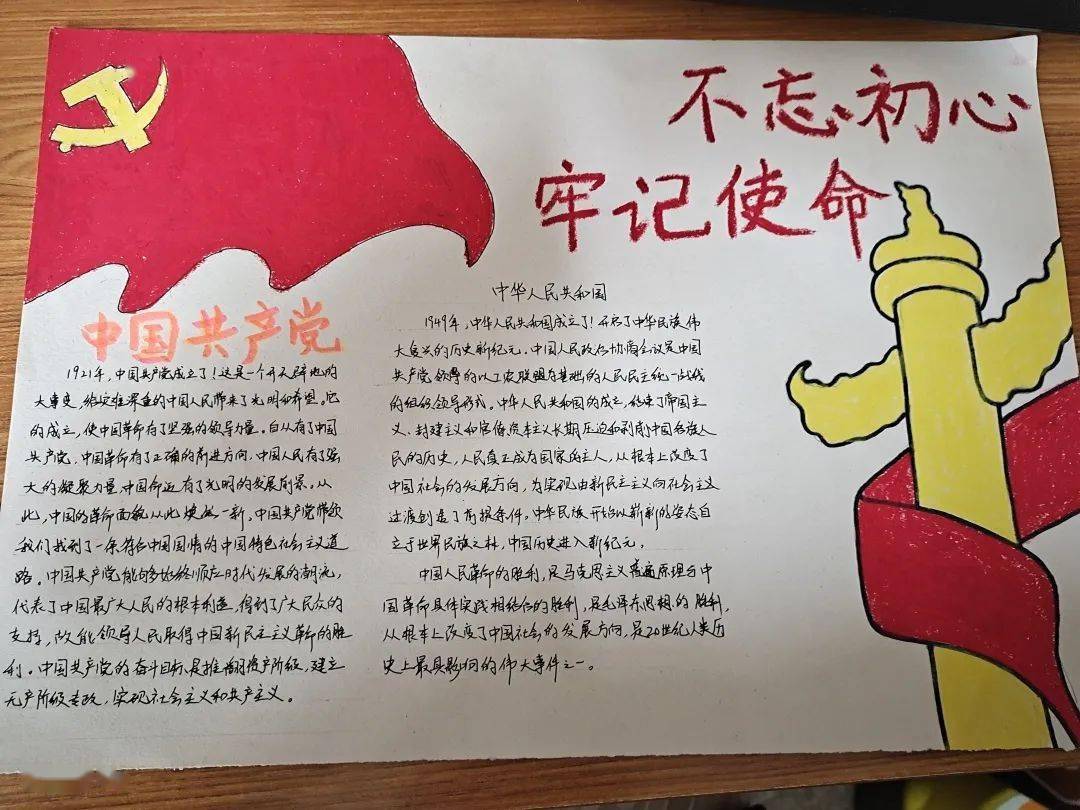 不忘初心
牢记使命
中国共产党
1921年,中国共产党成立了!这是一个开天辟地的
大事变,给灾难深重的中国人民带来了光明和希望。它
的成立,使中国革命有了坚强的领导力量。自从有了中国
共产党,中国革命有了正确的前进方向,中国人民有了强
大的凝聚力量,中国命运有了光明的发展前景。从
此,中国的革命面貌从此焕然一新。中国共产党带领
我们找到了一条符合中国国情的中国特色社会主义道
路。中国共产党能够始终顺应时代发展的潮流,
代表了中国最广大人民的根本利益,得到了广大民众的
支持,故能领导人民取得中国新民主主义革命的胜
利。中国共产党的奋斗目标是推翻资产阶级,建立
无产阶级专政,实现社会主义和共产主义。
中华人民共和国
1949年,中华人民共和国成立了!开启了中华民族伟
大复兴的历史新纪元。中国人民政治协商会议是中国
共产党领导的以工农联盟为基础的人民民主统一战线
的组织领导形式。中华人民共和国的成立,结束了帝国主
义、封建主义和官僚资本主义长期压迫和剥削中国各族人
民的历史,人民真正成为国家的主人,从根本上改变了
中国社会的发展方向,为实现由新民主主义向社会主义
过渡创造了前提条件。中华民族开始以崭新的姿态自
立于世界民族之林,中国历史进入新纪元。
中国人民革命的胜利,是马克思主义普遍原理与中
国革命具体实践相结合的胜利,是毛泽东思想的胜利,
从根本上改变了中国社会的发展方向,是20世纪人类历
史上最具影响的伟大事件之一。